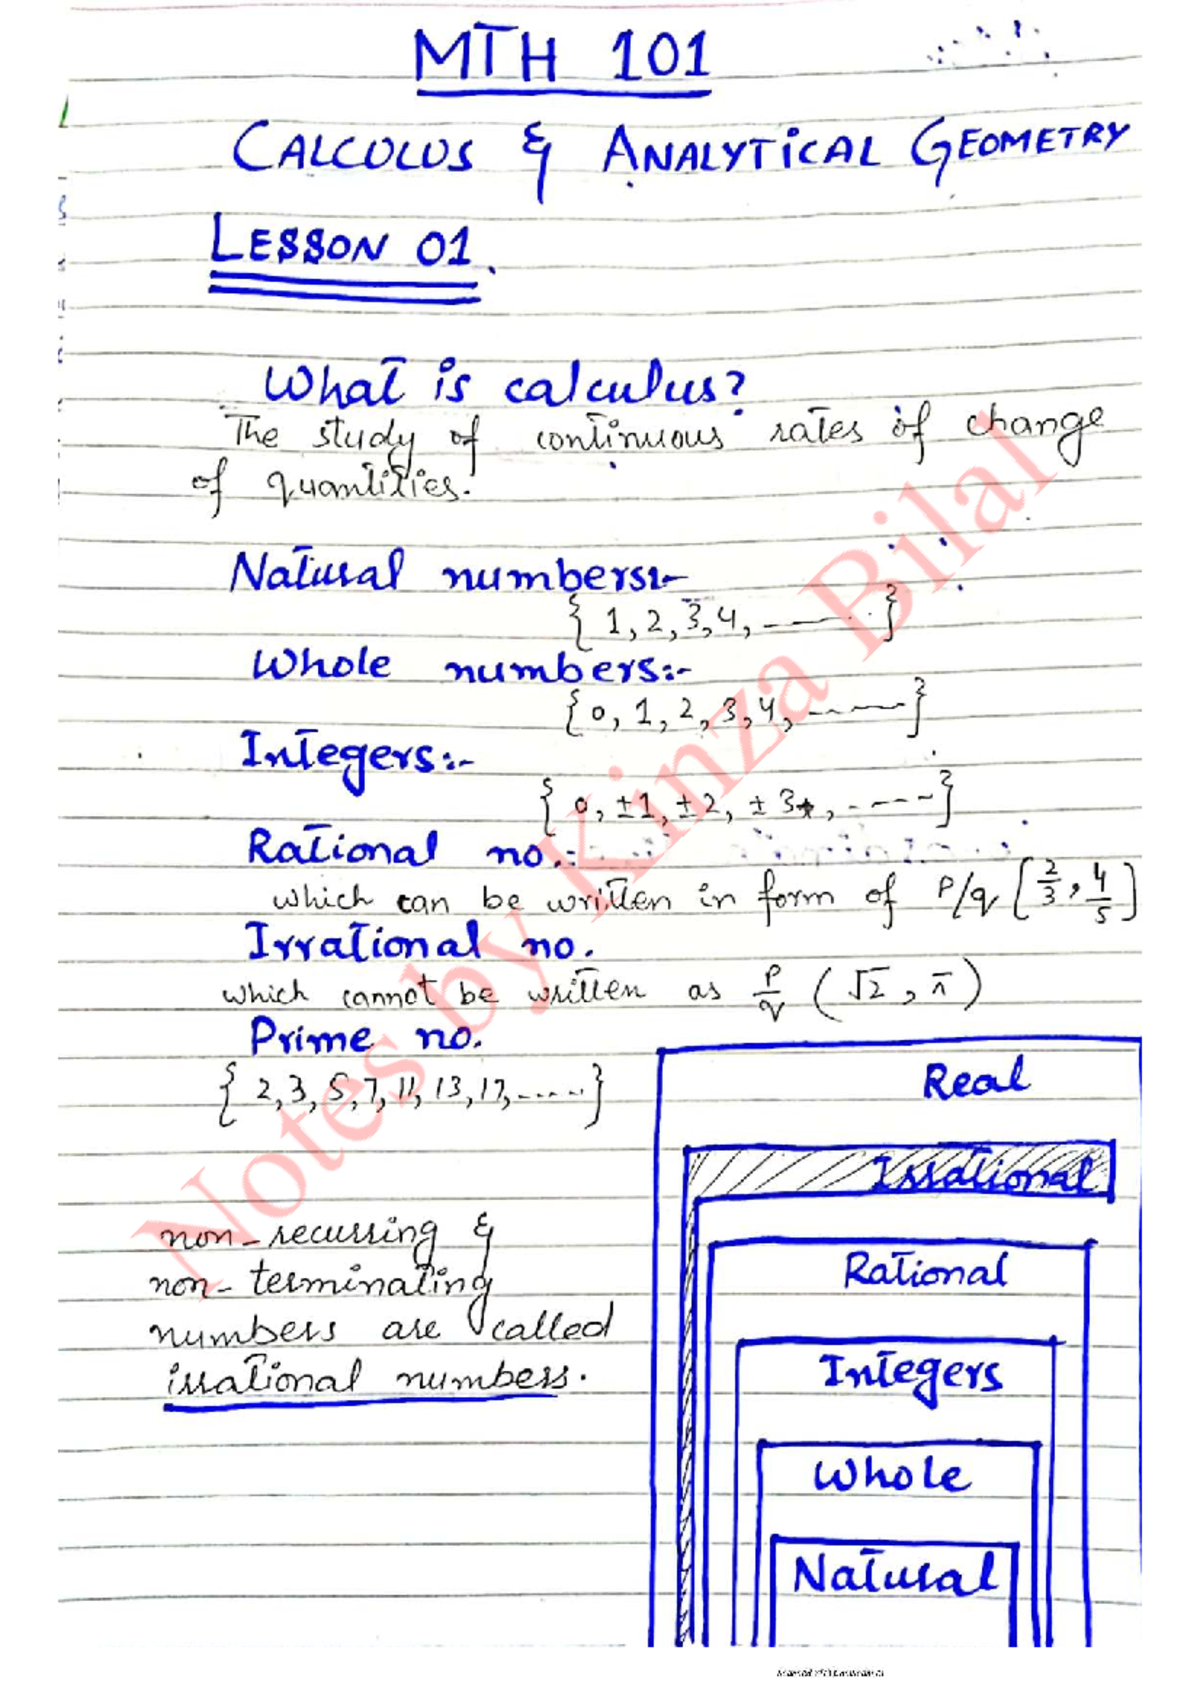 MTH 101
CALCULUS & ANALYTICAL GEOMETRY
LESSON 01.
What is calculus?
The study of continuous rates of change
of quantities.
Natural numbers:-
{ 1, 2, 3, 4, ------- }
Whole numbers:-
{ 0, 1, 2, 3, 4, ------- }
Integers:-
{ 0, ±1, ±2, ±3, ---- }
Rational no.:-
which can be written in form of P/q [ 2/3, 4/5 ]
Irrational no.
which cannot be written as P/q ( √2, π )
Prime no.
{ 2, 3, 5, 7, 11, 13, 17, ..... }
Real
Irrational
non-recurring &
non-terminating
numbers are called
irrational numbers.
Rational
Integers
Whole
Natural
Notes by Kinza Bilal